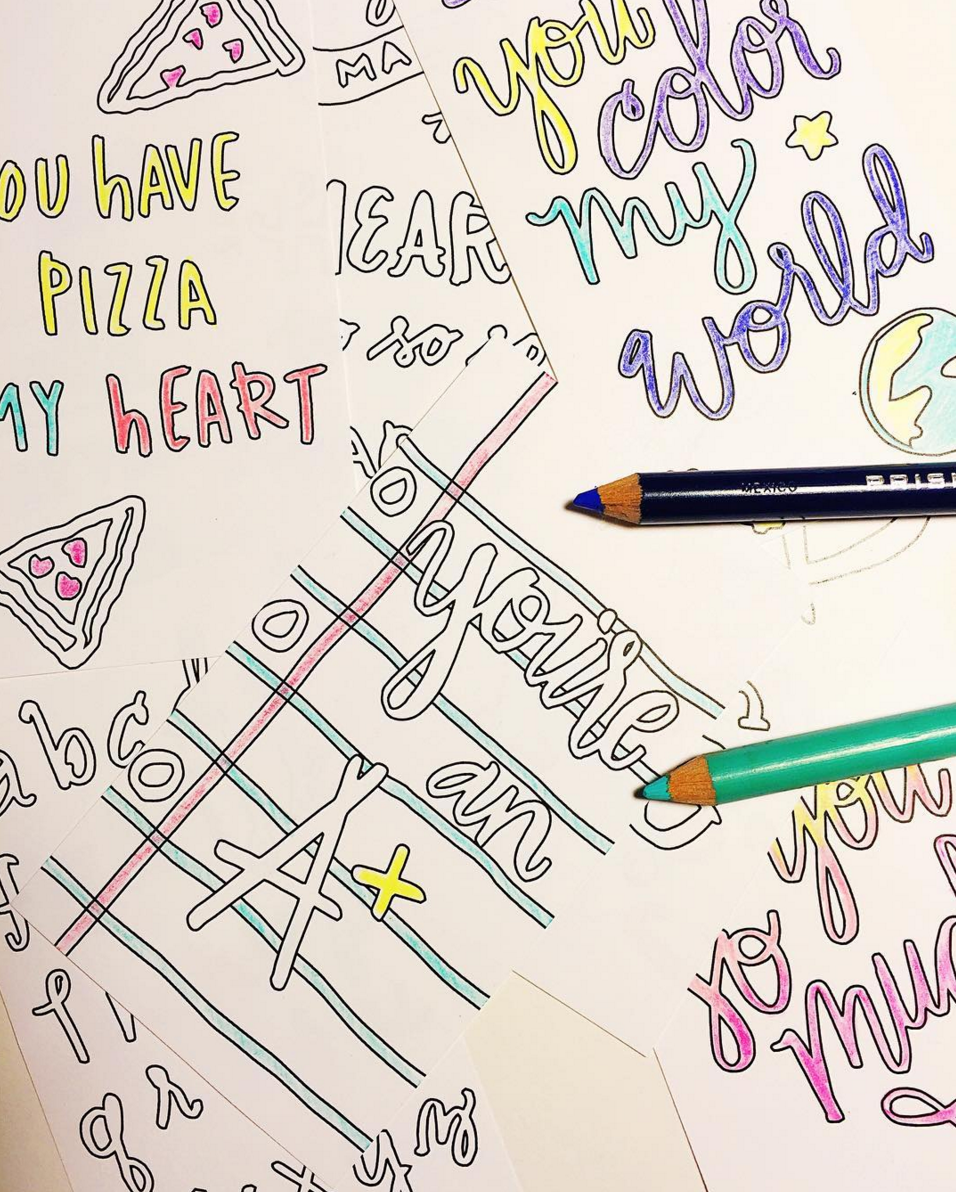 OU HAVE
PIZZA
MY HEART
MA
EAR
so
you
color
my
world
MEXICO PRIS
you're
an
A+
a b c
you
so
much
g r
y z